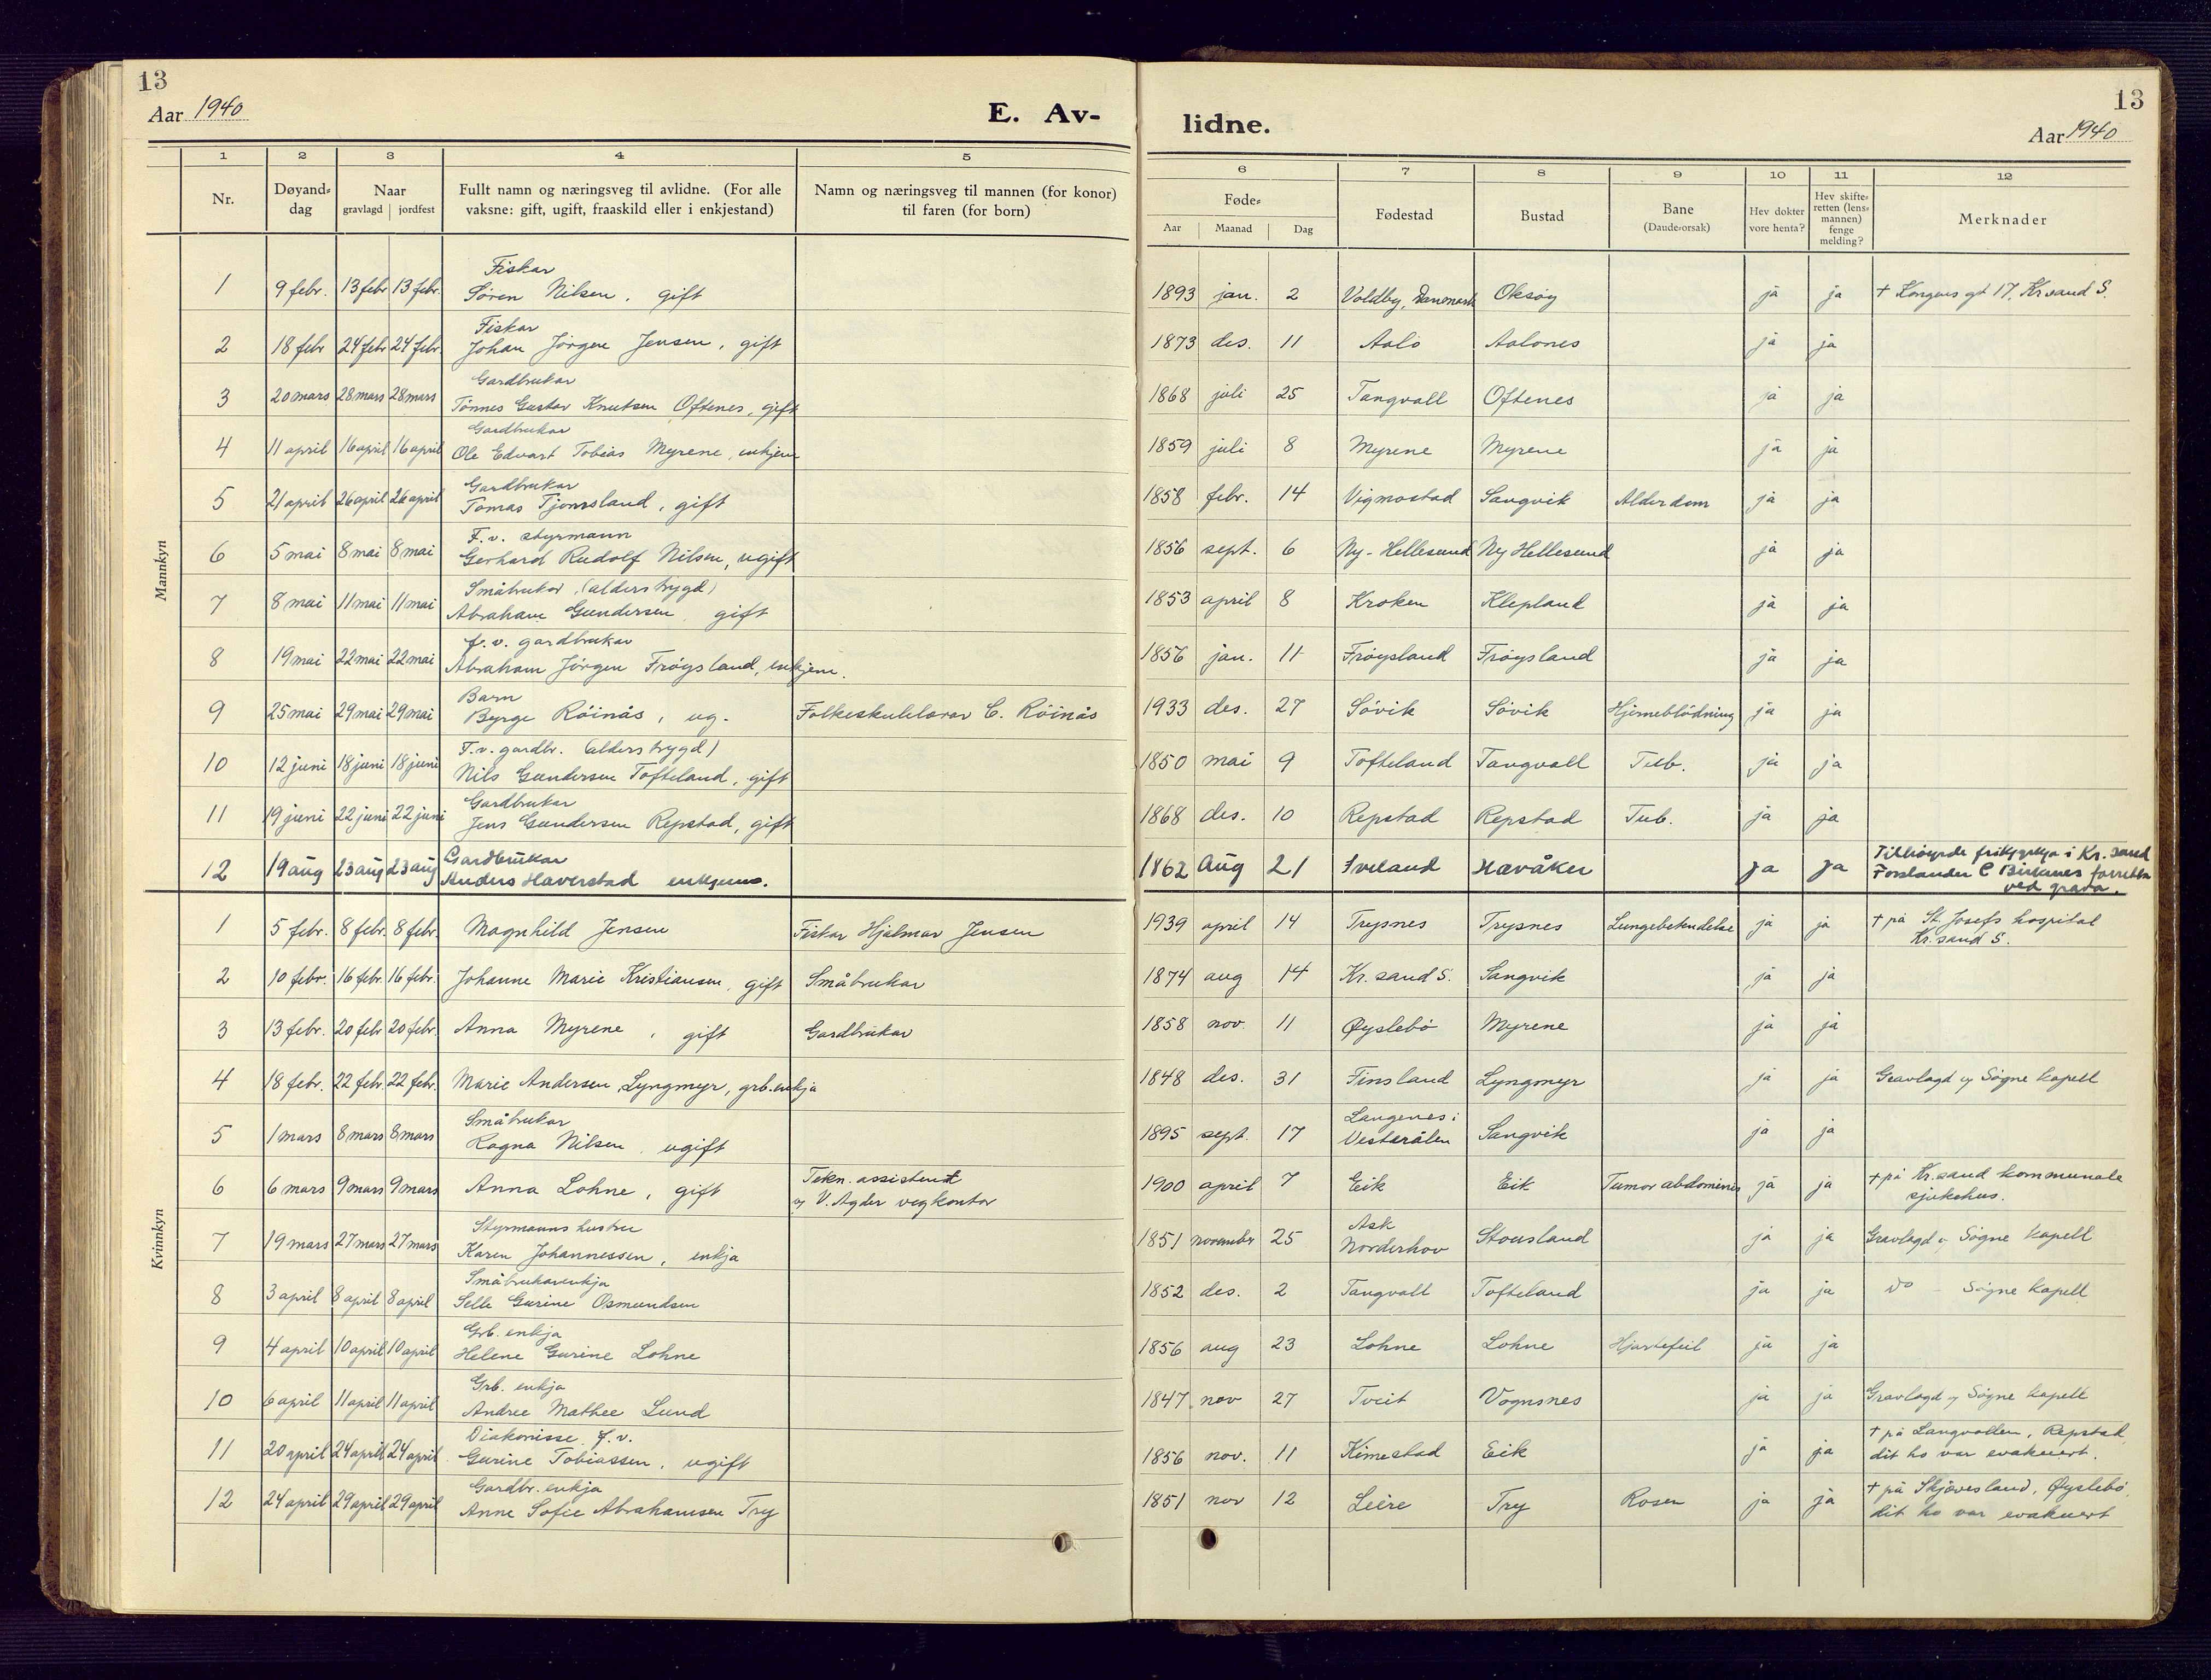 13
Aar 1940
E. Av-
1 2 3 4 5
Nr. Døyand-dag Naar gravlagd jordfest Fullt namn og næringsveg til avlidne. (For alle vaksne: gift, ugift, fraaskild eller i enkjestand) Namn og næringsveg til mannen (for konor) til faren (for born)
Mannkyn
Fiskar
1 9 febr. 13 febr 13 febr. Sören Nilsen, gift
Fiskar
2 18 febr 24 febr 24 febr. Johan Jörgen Jensen, gift
Gardbrukar
3 20 mars 28 mars 28 mars Tönnes Gustav Knutsen Oftenes, gift
Gardbrukar
4 11 april 16 april 16 april Ole Edvart Tobias Myrene, enkjem
Gardbrukar
5 21 april 26 april 26 april Tomas Tjomsland, gift
F.v. styrmann
6 5 mai 8 mai 8 mai Gerhard Rudolf Nilsen, ugift
Småbrukar, (alderstrygd)
7 8 mai 11 mai 11 mai Abraham Gundersen, gift
f.v. gardbrukar
8 19 mai 22 mai 22 mai Abraham Jörgen Fröysland, enkjem.
Barn
9 25 mai 29 mai 29 mai Byrge Röinås, ug. Folkeskulelærar C. Röinås
F.v. gardbr. (alderstrygd)
10 12 juni 18 juni 18 juni Nils Gundersen Tofteland, gift
Gardbrukar
11 19 juni 22 juni 22 juni Jens Gundersen Repstad, gift
Gardbrukar
12 19 aug 23 aug 23 aug Anders Haverstad
Kvinnkyn
1 5 febr. 8 febr. 8 febr. Magnhild Jensen Fiskar Hjalmar Jensen
2 10 febr. 16 febr. 16 febr. Johanne Marie Kristiansen, gift Småbrukar
3 13 febr. 20 febr 20 febr. Anna Myrene, gift Gardbrukar
4 18 febr. 22 febr. 22 febr. Marie Andersen Lyngmyr, grb.enkja
Småbrukar
5 1 mars 8 mars 8 mars Ragna Nilsen, ugift
Tekn. assistent
6 6 mars 9 mars 9 mars Anna Lohne, gift V. Agder vegkontor
Styrmanns hustru
7 19 mars 27 mars 27 mars Karen Johannessen, enkja
Småbrukarenkja
8 3 april 8 april 8 april Selle Gurine Osmundsen
Grb. enkja
9 4 april 10 april 10 april Helene Gurine Lohne
Grb. enkja
10 6 april 11 april 11 april Andree Mathee Lund
Diakonisse f.v.
11 20 april 24 april 24 april Gurine Tobiassen, ugift
Gardbr. enkja
12 24 april 29 april 29 april Anne Sofie Abrahamsen Try
13
lidne.
Aar 1940
6 7 8 9 10 11 12
Føde- Aar Maanad Dag Fødestad Bustad Bane (Daude-orsak) Hev dokter vore henta? Hev skifte-retten (lens-mannen) fenge melding? Merknader
1893 jan. 2 Voldby, Danmark Oksöy ja ja † Kongens gt 17, Kr.sand S.
1873 des. 11 Aalo Aalones ja ja
1868 juli 25 Tangvall Oftenes ja ja
1859 juli 8 Myrene Myrene ja ja
1858 febr. 14 Vigmostad Sangvik Alderdom ja ja
1856 sept. 6 Ny-Hellesund Ny Hellesund ja ja
1853 april 8 Kroken Klepland ja ja
1856 jan. 11 Fröysland Fröysland ja ja
1933 des. 27 Sövik Sövik Hjerneblödning ja ja
1850 mai 9 Tofteland Tangvall Tub. ja ja
1868 des. 10 Repstad Repstad Tub. ja ja
1862 Aug 21 Iveland Hævåker ja ja Tilhöyrde frikyrkja i Kr. sand
Forstander C Birkenes forretta
ved grava.
1939 april 14 Trysnes Trysnes Lungebetendelse ja ja † på St. Josefs hospital
Kr.sand S.
1874 aug 14 Kr.sand S. Sangvik ja ja
1858 nov. 11 Øyslebö Myrene ja ja
1848 des. 31 Finsland Lyngmyr ja ja Gravlagd Søgne kapell
1895 sept. 17 Langenes i Vesterålen Sangvik ja ja
1900 april 7 Eik Eik Tumor abdominis ja ja † på Kr.sand kommunale
sjukehus.
1851 november 25 Ask Norderhov Stousland ja ja Gravlagd Søgne kapell
1852 des. 2 Tangvall Tofteland ja ja do - Søgne kapell
1856 aug 23 Lohne Lohne Hjartefeil ja ja
1847 nov 27 Tveit Vognsnes ja ja Gravlagd Søgne kapell
1856 nov. 11 Kimestad Eik ja ja † på Langvollen, Repstad,
dit ho var evakuert.
1851 nov 12 Leire Try Rosen ja ja † på Skjævesland, Øyslebö,
dit ho var evakuert